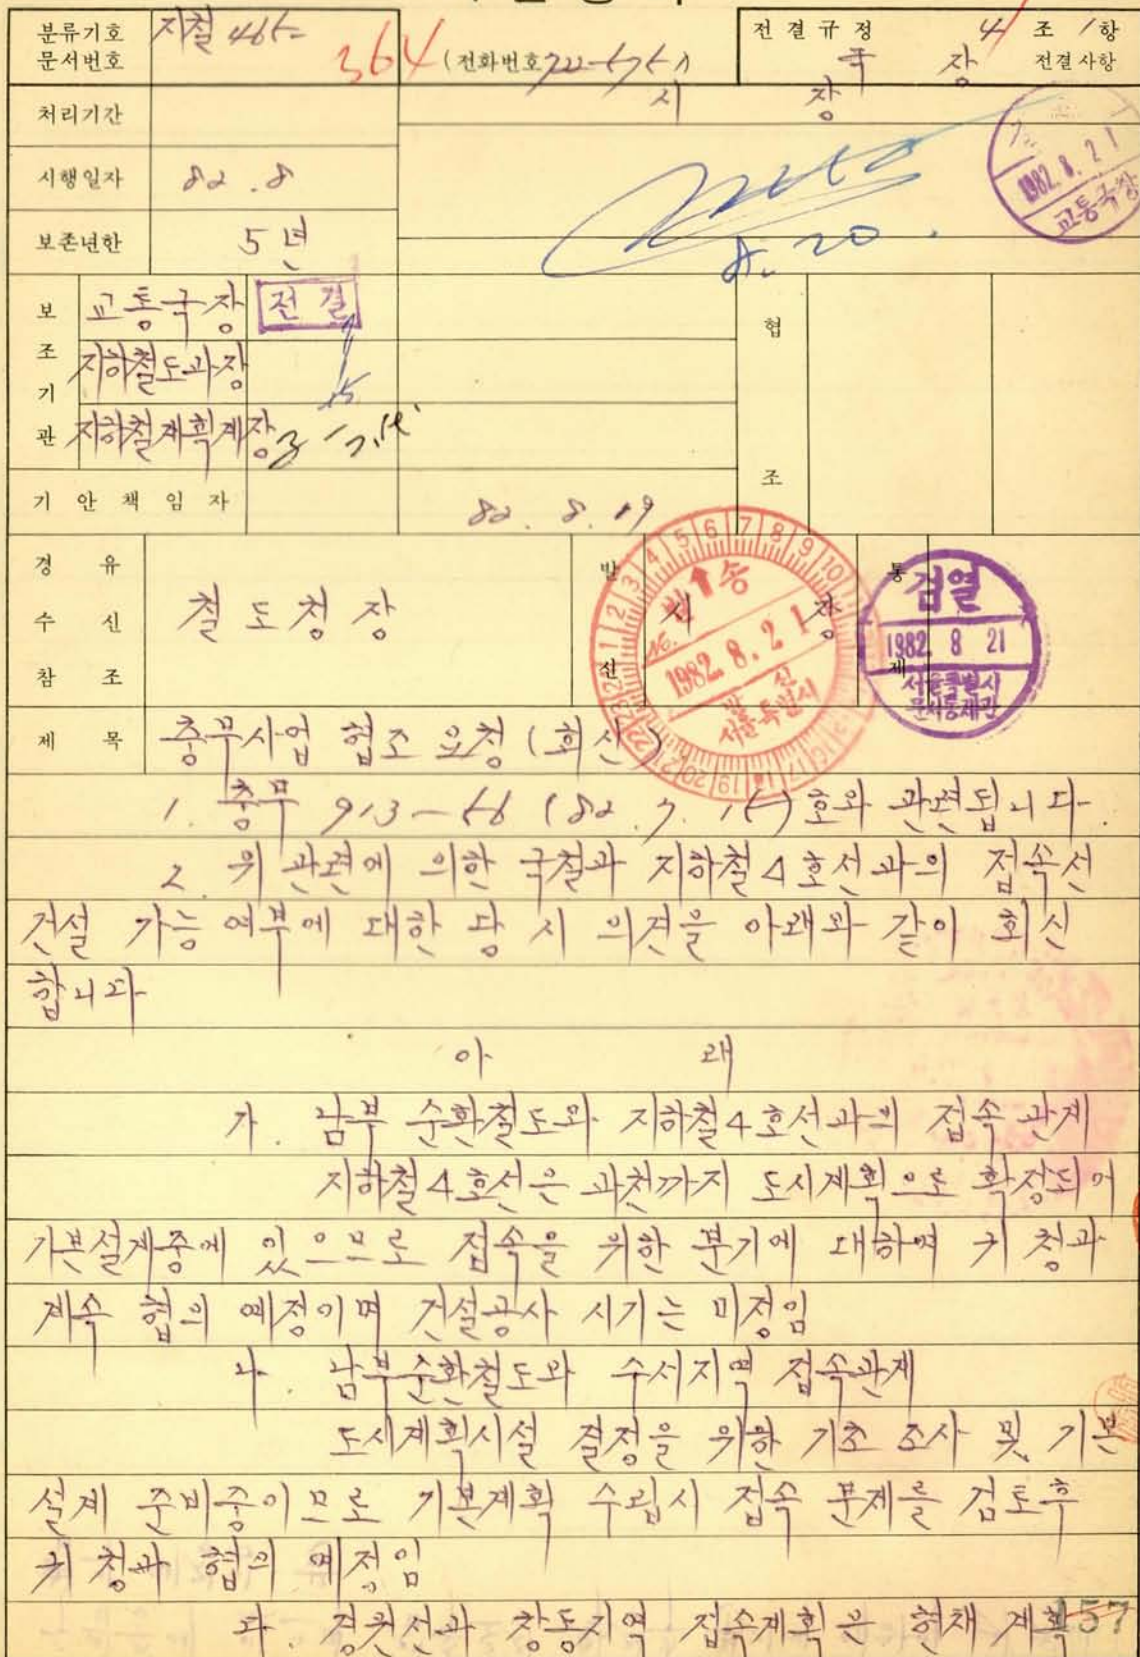 분류기호
문서번호
지철 465-
364
(전화번호
전결규정 4조 1항
국장 전결사항
처리기간
시장
시행일자 82.8
8.20.
1982.8.21
교통국장
보존년한 5년
보조기관
교통국장 전결
지하철도과장
지하철계획계장
협조
기안책임자
82.8.19
경유
수신
참조
철도청장
발신
시장
통제
발송
1982.8.21
발신
서울특별시
검열
1982 8 21
서울특별시
문서통제관
제목 충무사업 협조 요청 (회신)
1. 충무 913-56 (82.7.15)호와 관련됩니다.
2. 위 관련에 의한 국철과 지하철4호선과의 접속선
건설 가능 여부에 대한 당 시 의견을 아래와 같이 회신
합니다
아래
가. 남부 순환철도와 지하철4호선과의 접속 관계
지하철4호선은 과천까지 도시계획으로 확장되어
기본설계중에 있으므로 접속을 위한 분기에 대하여 귀 청과
계속 협의 예정이며 건설공사 시기는 미정임
나. 남부순환철도와 수서지역 접속관계
도시계획시설 결정을 위한 기초 조사 및 기본
설계 준비중이므로 기본계획 수립시 접속 문제를 검토후
귀 청과 협의 예정임
다. 경원선과 창동지역 접속계획은 현재 계획
157